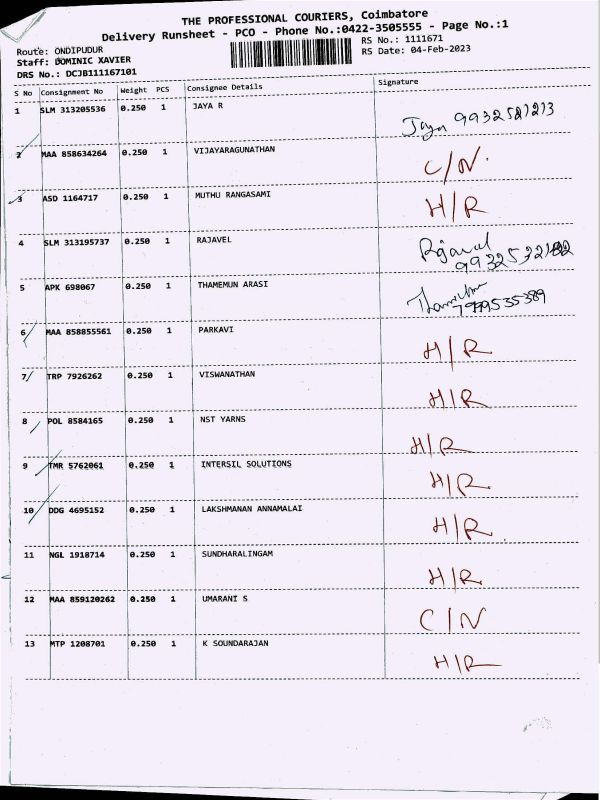 THE PROFESSIONAL COURIERS, Coimbatore
Delivery Runsheet - PCO - Phone No.:0422-3505555 - Page No.:1
Route: ONDIPUDUR
Staff: DOMINIC XAVIER
DRS No.: DCJB111167101
RS No.: 1111671
RS Date: 04-Feb-2023
S No Consignment No Weight PCS Consignee Details Signature
1 SLM 313205536 0.250 1 JAYA R Jaya
2 MAA 858634264 0.250 1 VIJAYARAGUNATHAN C/N.
3 ASD 1164717 0.250 1 MUTHU RANGASAMI H/R
4 SLM 313195737 0.250 1 RAJAVEL
5 APK 698067 0.250 1 THAMEMUN ARASI
6 MAA 858855561 0.250 1 PARKAVI H/R
7 TRP 7926262 0.250 1 VISWANATHAN H/R
8 POL 8584165 0.250 1 NST YARNS H/R
9 TMR 5762061 0.250 1 INTERSIL SOLUTIONS H/R
10 DDG 4695152 0.250 1 LAKSHMANAN ANNAMALAI H/R
11 NGL 1918714 0.250 1 SUNDHARALINGAM H/R
12 MAA 859120262 0.250 1 UMARANI S C/N
13 MTP 1208701 0.250 1 K SOUNDARAJAN H/R